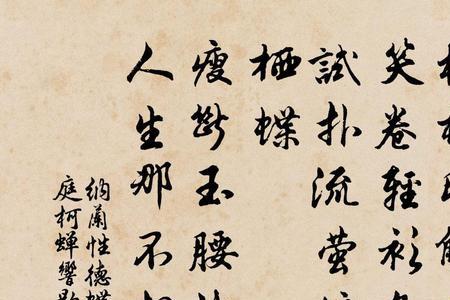 笑卷輕衫
試扑流萤
栖蝶
瘦斷玉腰
人生那不
納蘭性德蝶
庭柯蟬響